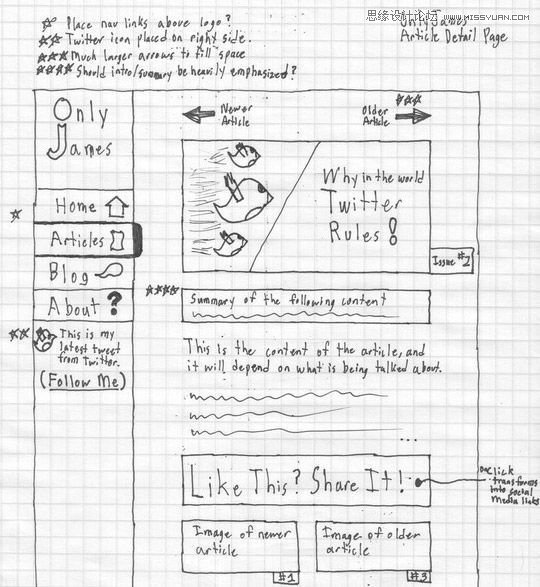 ☆ Place nav links above logo?
☆☆ Twitter icon placed on right side.
☆☆☆ Much larger arrows to fill space
☆☆☆☆ Should intro/summary be heavily emphasized?
思缘设计论坛 WWW.MISSYUAN.COM
Only James
Article Detail Page
Only
James
Newer
Article
☆☆☆
Older
Article
Why in the world
Twitter
Rules!
Issue #2
☆
Home
Articles
Blog
About ?
☆☆
This is my
latest tweet
from Twitter.
(Follow Me)
☆☆☆☆
Summary of the following content
This is the content of the article, and
it will depend on what is being talked about.
...
Like This? Share It!
onclick
transforms
into social
media links
Image of newer
article
#1
Image of older
article
#3